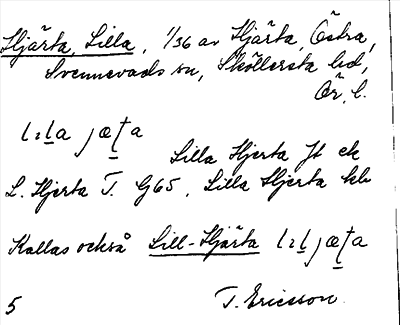 Hjärta, Lilla, 1/36 av Hjärta, Östra,
Svennevads sn, Sköllersta hd,
Ör. l.
lɩḷa jæṭa
Lilla Hjerta Jb ek
L. Hjerta T. G65. Lilla Hjerta kb
Kallas också Lill-Hjärta lɩḷjæṭa
5 T. Ericsson